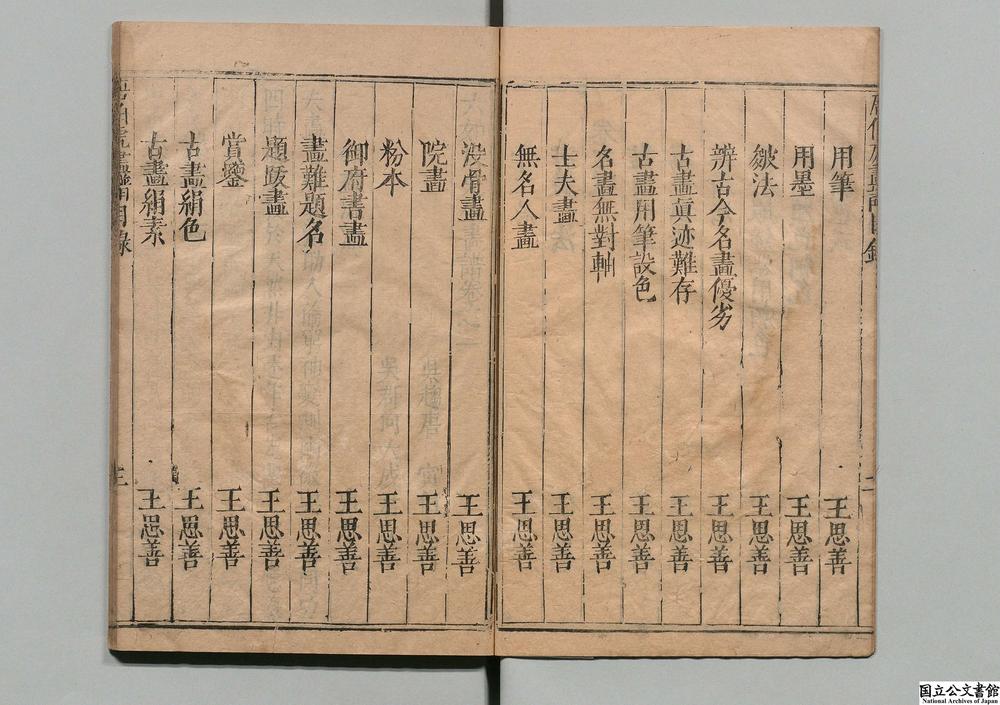 用筆 王思善
用墨 王思善
皴法 王思善
辨古今名畫優劣 王思善
古畫眞迹難存 王思善
古畫用筆設色 王思善
名畫無對軸 王思善
士夫畫 王思善
無名人畫 王思善
沒骨畫 王思善
院畫 王思善
粉本 王思善
御府書畫 王思善
畫難題名 王思善
題跋畫 王思善
賞鑒 王思善
古畫絹色 王思善
古畫絹素 王思善
目錄
三
国立公文書館
National Archives of Japan